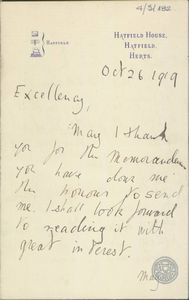 4/3/192
HATFIELD
HATFIELD HOUSE,
HATFIELD,
HERTS.
Oct 26 1919
Excellency,
May I thank
you for the Memorandum
you have done me
the honour to send
me. I shall look forward
to reading it with
great interest.
May